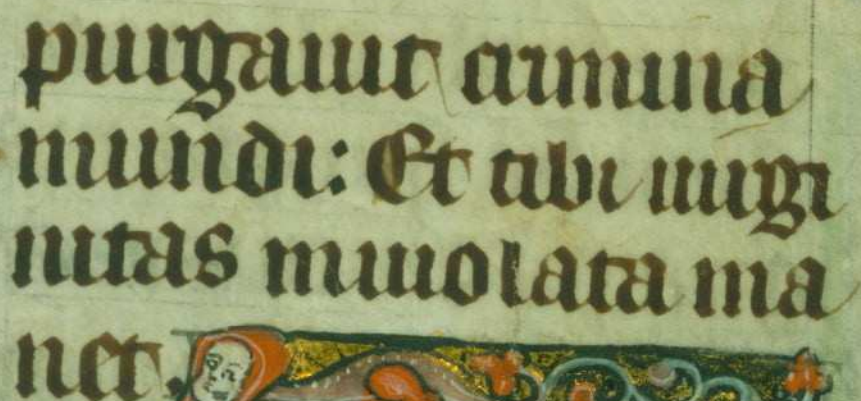 purgauit crimina
mundi: Et tibi uirgi
nitas inuiolata ma
net.